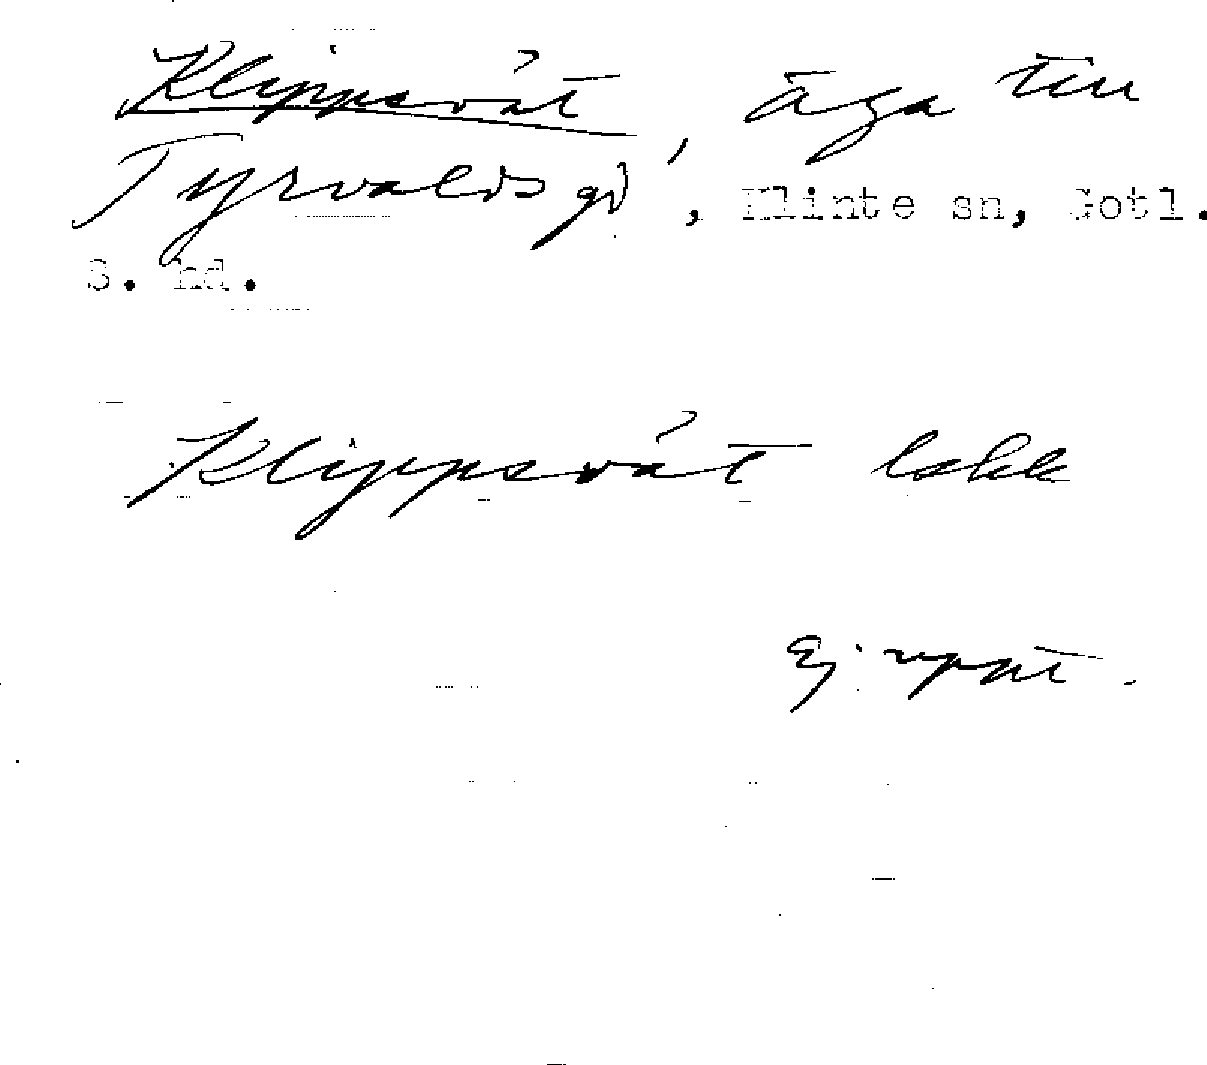 Klippsvät, äga till
Tyrvalds gd, Klinte sn, Gotl.
S. hd.
Klippsvät
Ej uppt.